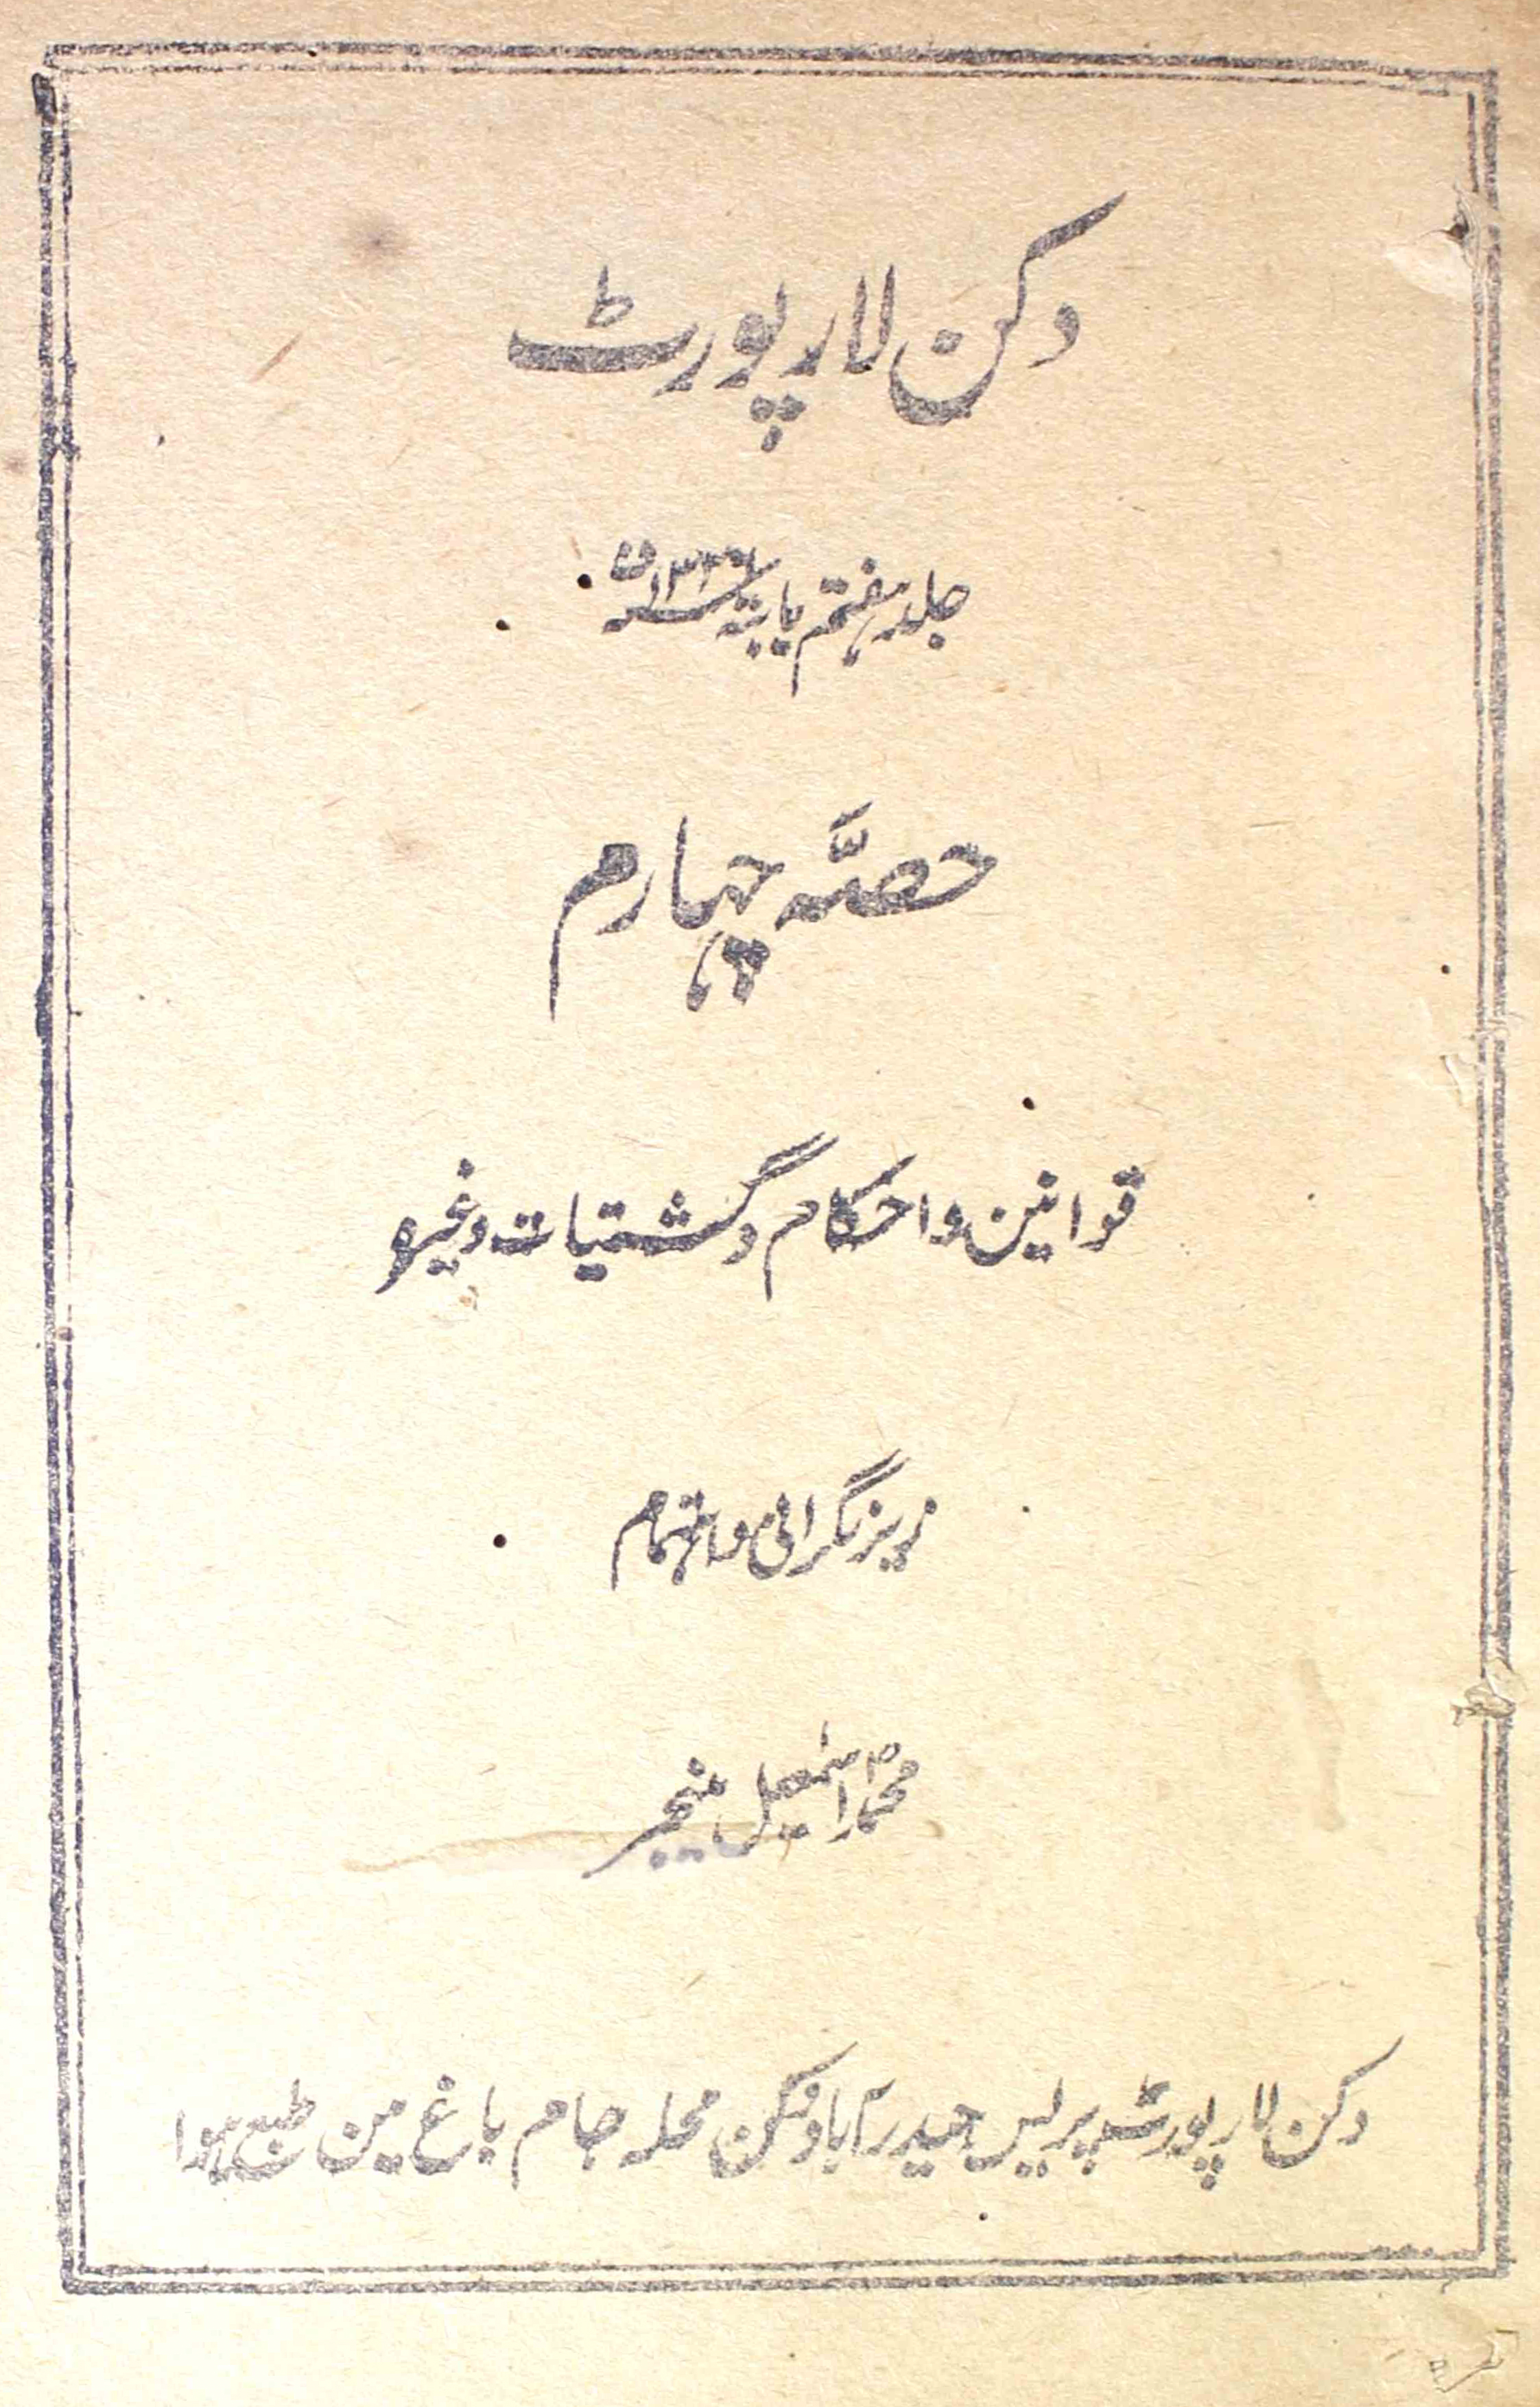 دکن لا رپورٹ
جلد ہفتم بابتہ
حصّہ چہارم
قوانین و احکام و گشتیات وغیرہ
زیر نگرانی و اہتمام
محمد اسمٰعیل منیجر
دکن لا رپورٹ پریس حیدرآباد دکن محلہ جام باغ مین طبع ہوا